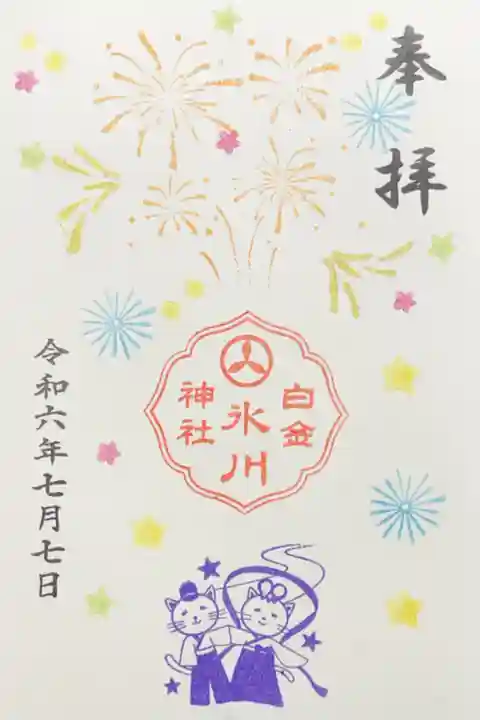 奉拝
白金
氷川
神社
令和六年七月七日